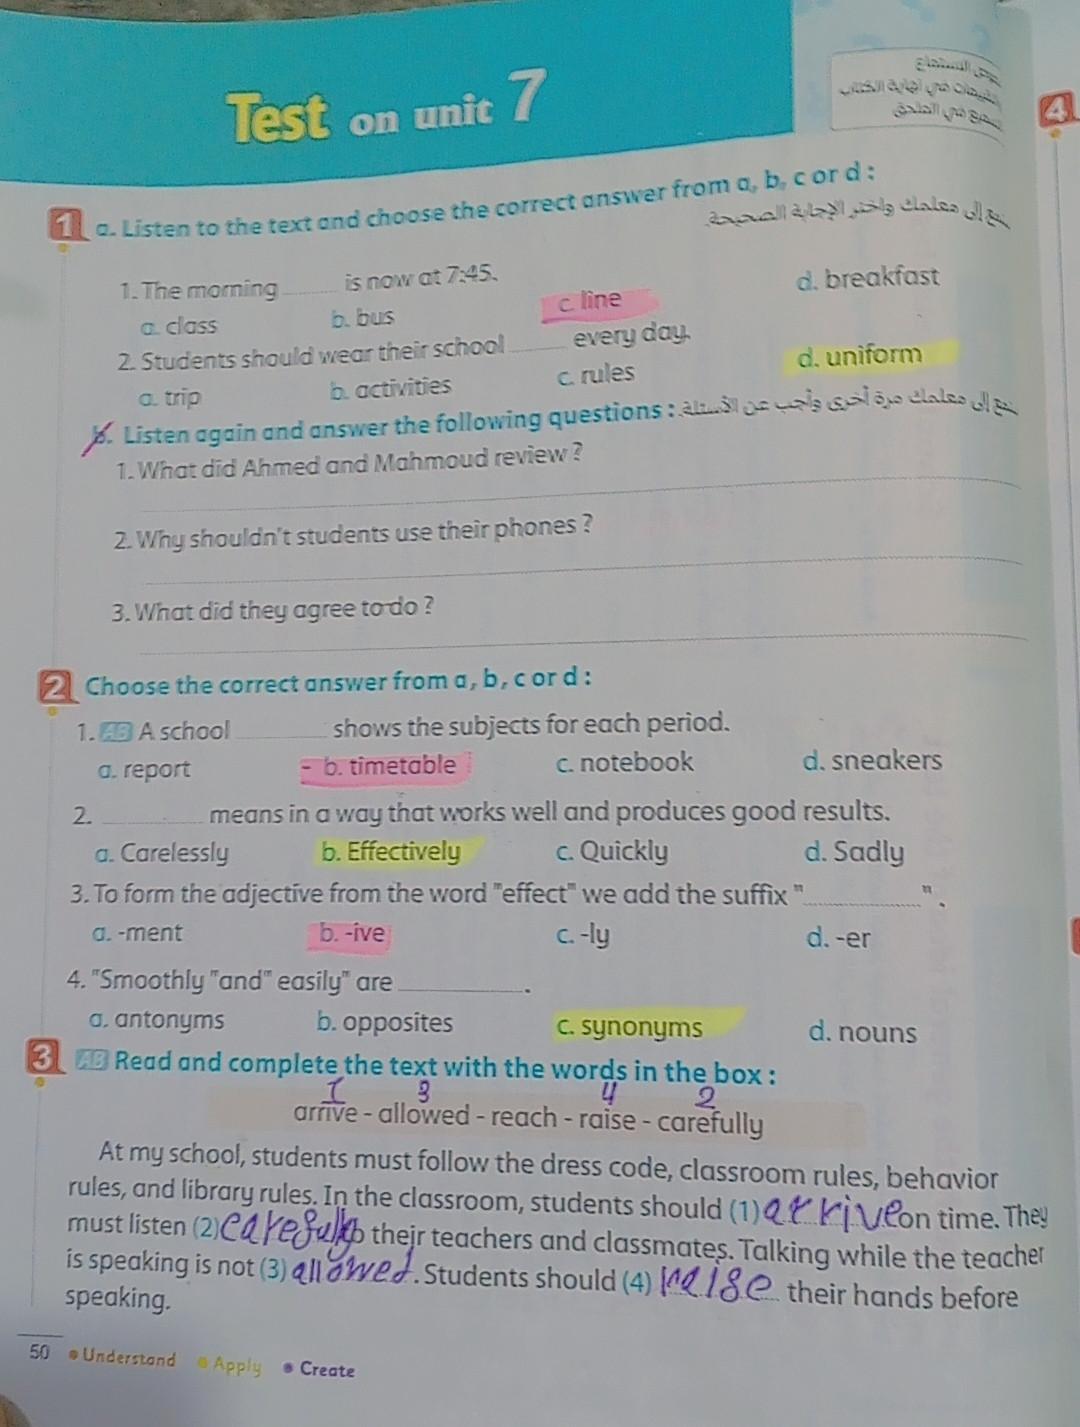 Test on unit 7
4
1 a. Listen to the text and choose the correct answer from a, b, c or d :
إلى معلمك واختر الإجابة الصحيحة.
1. The morning ______ is now at 7:45.
a. class b. bus c. line d. breakfast
2. Students should wear their school ______ every day.
a. trip b. activities c. rules d. uniform
b. Listen again and answer the following questions : إلى معلمك مرة أخرى وأجب عن الأسئلة
1. What did Ahmed and Mahmoud review ?
2. Why shouldn't students use their phones ?
3. What did they agree to do ?
2 Choose the correct answer from a, b, c or d :
1. AB A school ______ shows the subjects for each period.
a. report - b. timetable c. notebook d. sneakers
2. ______ means in a way that works well and produces good results.
a. Carelessly b. Effectively c. Quickly d. Sadly
3. To form the adjective from the word "effect" we add the suffix "______".
a. -ment b. -ive c. -ly d. -er
4. "Smoothly "and" easily" are ______.
a. antonyms b. opposites c. synonyms d. nouns
3 AB Read and complete the text with the words in the box :
1 3 4 2
arrive - allowed - reach - raise - carefully
At my school, students must follow the dress code, classroom rules, behavior
rules, and library rules. In the classroom, students should (1) arrive on time. They
must listen (2) carefully to their teachers and classmates. Talking while the teacher
is speaking is not (3) allowed. Students should (4) raise their hands before
speaking.
50 Understand Apply Create